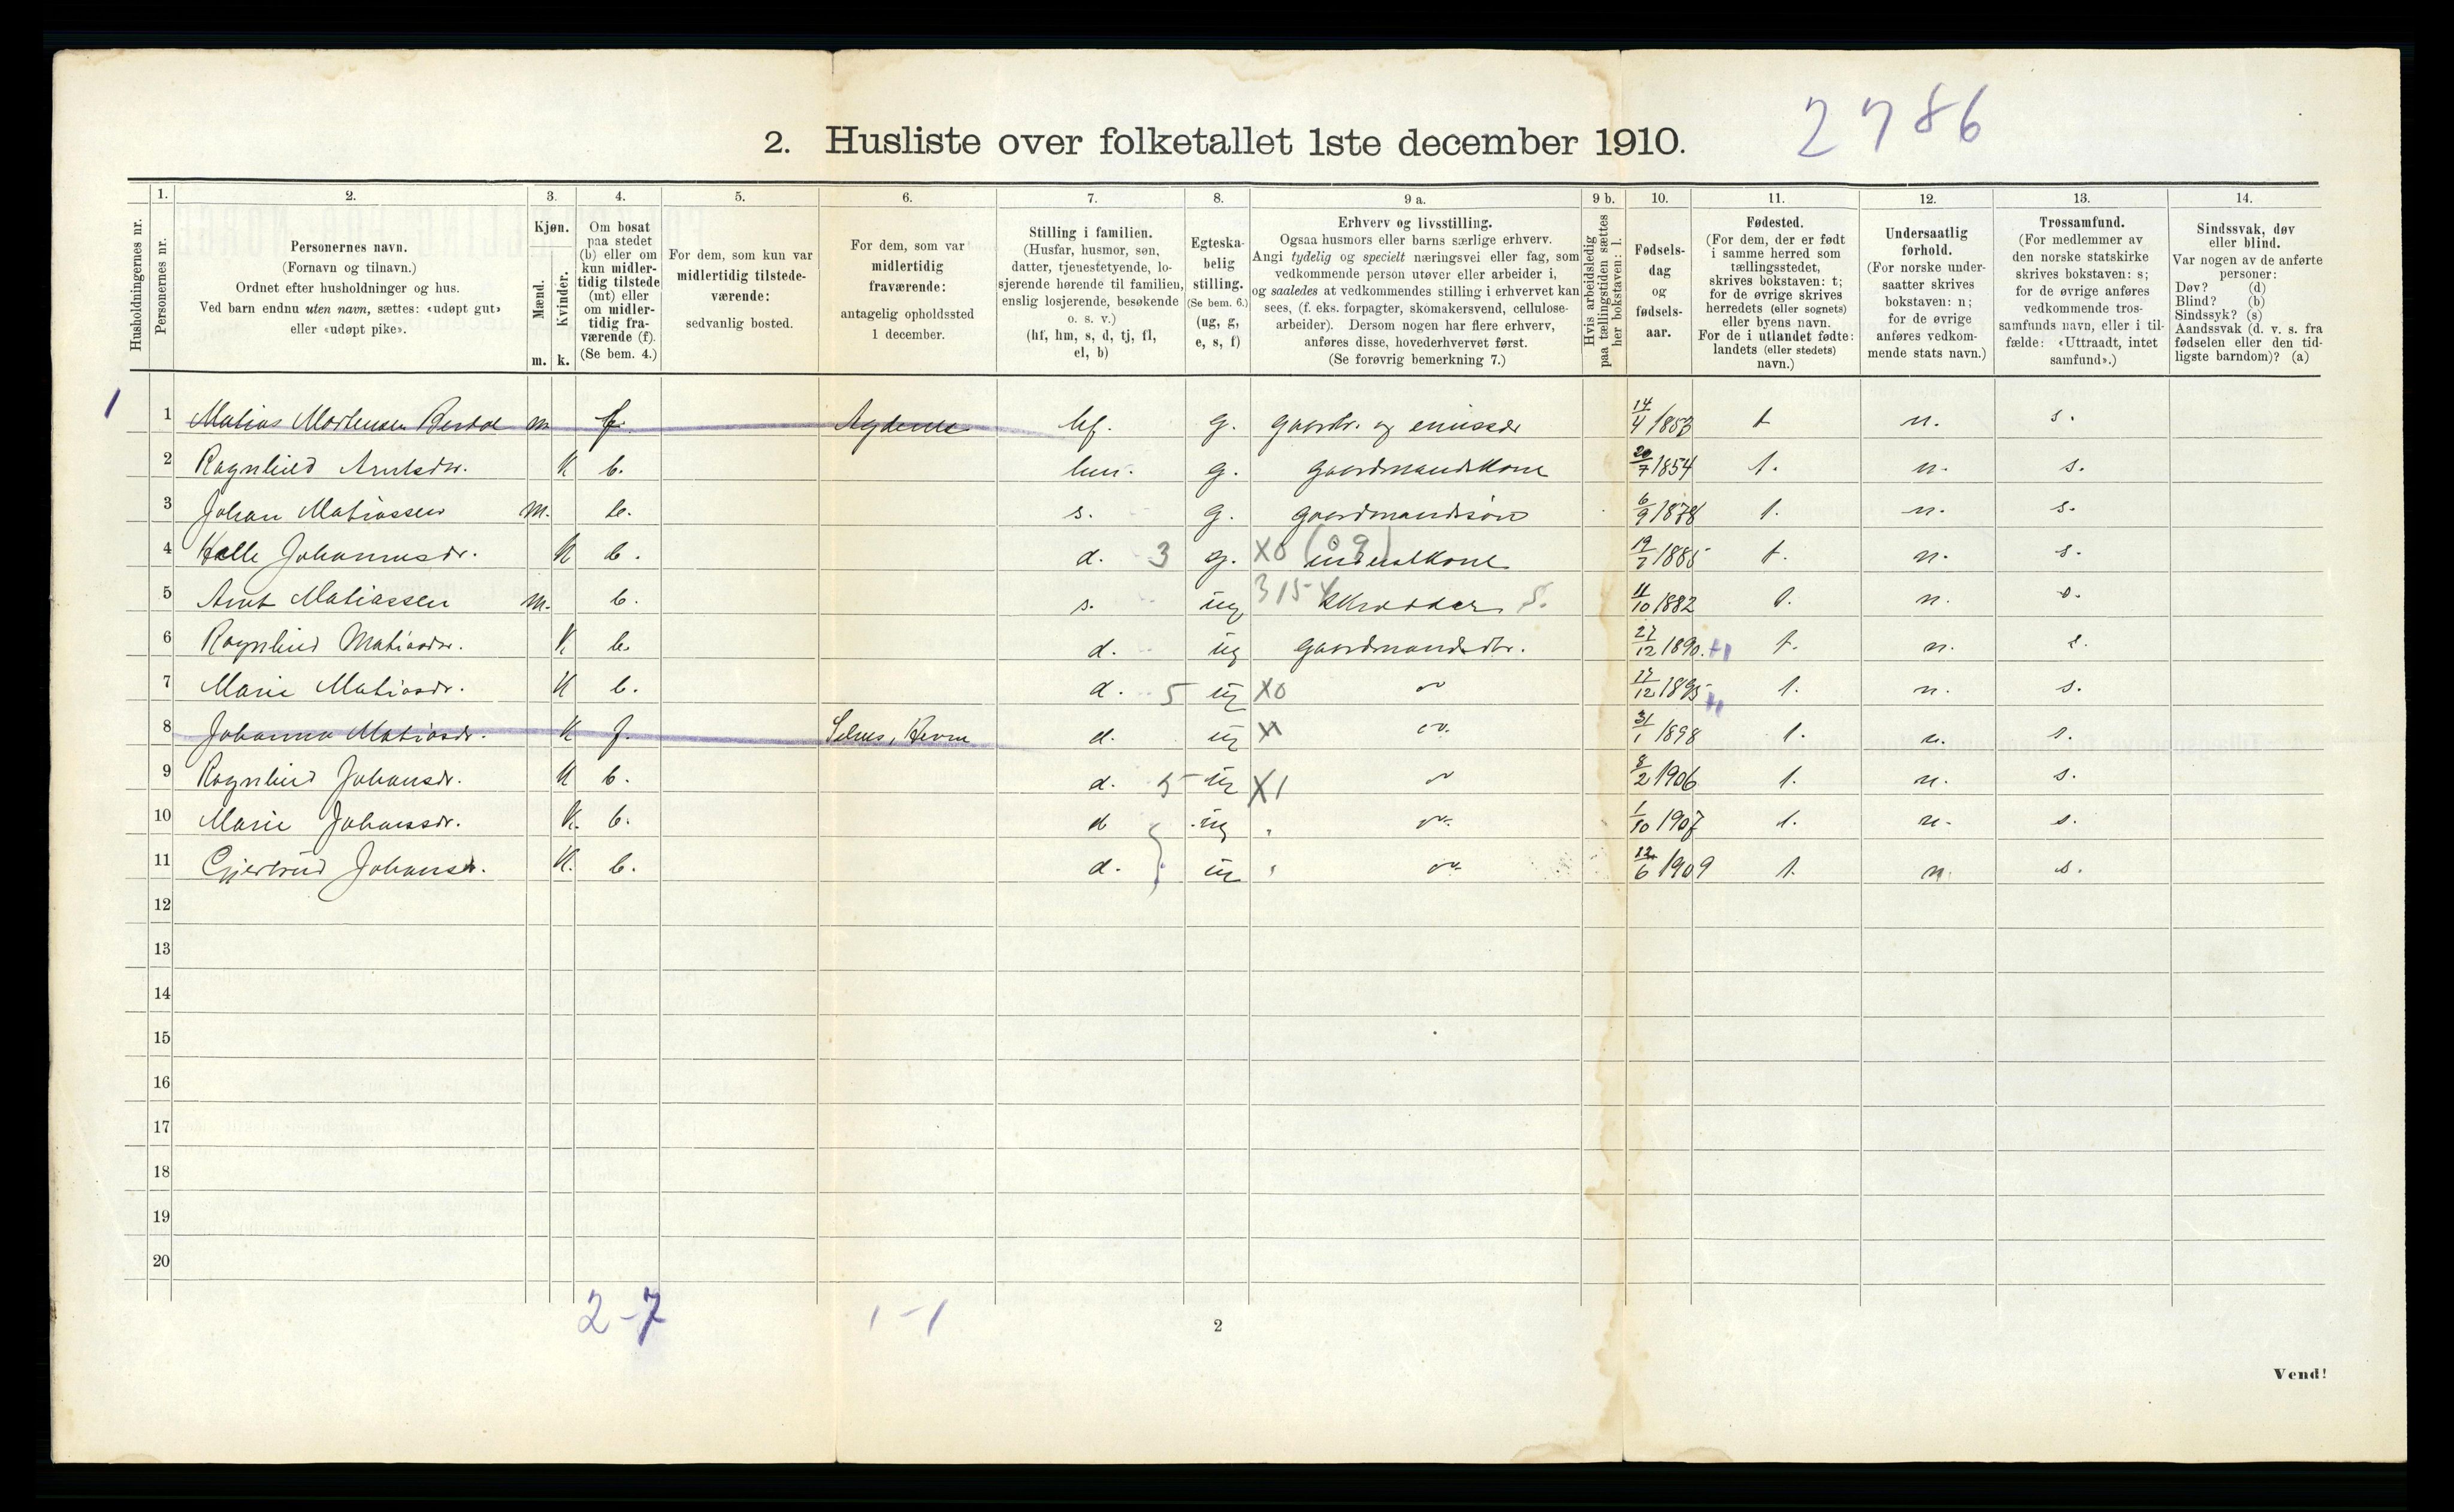 2786
2. Husliste over folketallet 1ste december 1910.
1. 2. 3. 4. 5. 6. 7. 8. 9 a. 9 b. 10. 11. 12. 13. 14.
Husholdningernes nr.
Personernes nr.
Personernes navn.
(Fornavn og tilnavn.)
Ordnet efter husholdninger og hus.
Ved barn endnu uten navn, sættes: «udøpt gut»
eller «udøpt pike».
Kjøn.
Mænd.
Kvinder.
m. k.
Om bosat
paa stedet
(b) eller om
kun midler-
tidig tilstede
(mt) eller
om midler-
tidig fra-
værende (f).
(Se bem. 4.)
For dem, som kun var
midlertidig tilstede-
værende:
sedvanlig bosted.
For dem, som var
midlertidig
fraværende:
antagelig opholdssted
1 december.
Stilling i familien.
(Husfar, husmor, søn,
datter, tjenestetyende, lo-
sjerende hørende til familien,
enslig losjerende, besøkende
o. s. v.)
(hf, hm, s, d, tj, fl,
el, b)
Egteska-
belig
stilling.
(Se bem. 6.)
(ug, g,
e, s, f)
Erhverv og livsstilling.
Ogsaa husmors eller barns særlige erhverv.
Angi tydelig og specielt næringsvei eller fag, som
vedkommende person utøver eller arbeider i,
og saaledes at vedkommendes stilling i erhvervet kan
sees, (f. eks. forpagter, skomakersvend, cellulose-
arbeider). Dersom nogen har flere erhverv,
anføres disse, hovederhvervet først.
(Se forøvrig bemerkning 7.)
Hvis arbeidsledig
paa tællingstiden sættes
her bokstaven: l.
Fødsels-
dag
og
fødsels-
aar.
Fødested.
(For dem, der er født
i samme herred som
tællingsstedet,
skrives bokstaven: t;
for de øvrige skrives
herredets (eller sognets)
eller byens navn.
For de i utlandet fødte:
landets (eller stedets)
navn.)
Undersaatlig
forhold.
(For norske under-
saatter skrives
bokstaven: n;
for de øvrige
anføres vedkom-
mende stats navn.)
Trossamfund.
(For medlemmer av
den norske statskirke
skrives bokstaven: s;
for de øvrige anføres
vedkommende tros-
samfunds navn, eller i til-
fælde: «Uttraadt, intet
samfund».)
Sindssvak, døv
eller blind.
Var nogen av de anførte
personer:
Døv? (d)
Blind? (b)
Sindssyk? (s)
Aandssvak (d. v. s. fra
fødselen eller den tid-
ligste barndom)? (a)
1 1 Matias Mortensen m. f. Agdenes hf. g. gaardbr. og emissær 14/4 1853 t n. s.
2 Ragnhild Arntsdtr. K b. hm. g. gaardmandskone 20/7 1854 t. n. s.
3 Johan Matiassen m. b. s. g. gaardmandssøn 6/9 1878 t. n. s.
4 Johannesdr. K b. d. 3 g. X0 (09) 19/7 1885 t. n. s.
5 Arnt Matiassen m. b. s. ug 3154 Skrædder S. 11/10 1882 t. n. s.
6 Ragnhild Matiasdr. K b. d. ug gaardmandsdtr. 27/12 1890. t. n. s.
7 Marie Matiasdr. K b. d. 5 ug X0 " 17/12 1895 t. n. s.
8 Johanna Matiasdr. K f. d. ug X " 31/1 1898 t. n. s.
9 Ragnhild Johansdr. K b. d. 5 ug X1 " 8/2 1906 t. n. s.
10 Marie Johansdr. K. b. d ug " 1/10 1907 t. n. s.
11 Gjertrud Johansdr. K. b. d. ug " 12/6 1909 t. n. s.
12
13
14
15
16
17
18
19
20
2-7 1-1
2
Vend!